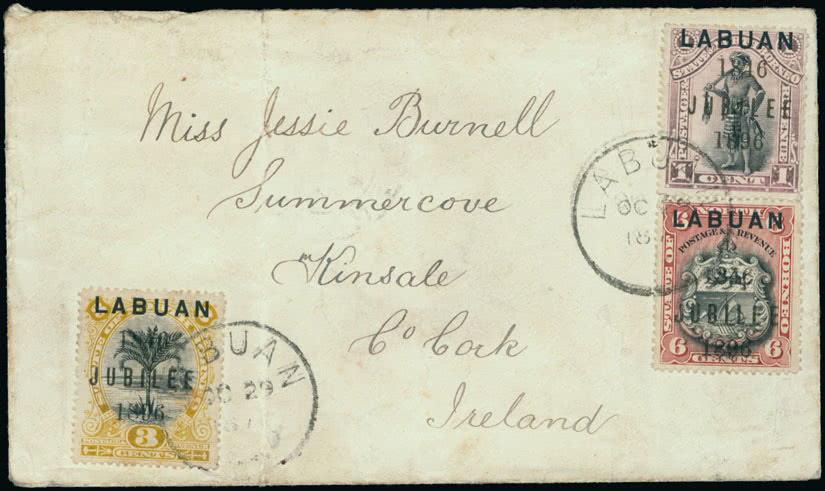 Miss Jessie Burnell
Summercove
Kinsale
Co Cork
Ireland
LABUAN
1846
JUBILEE
1896
STATE OF BORNEO
POSTAGE REVENUE
1 CENT 1
LABUAN
POSTAGE & REVENUE
STATE OF BORNEO
1846
JUBILEE
1896
6 CENTS 6
LABU
OC
18
LABUAN
JUBILEE
1896
3
CENTS
BUAN
OC 29